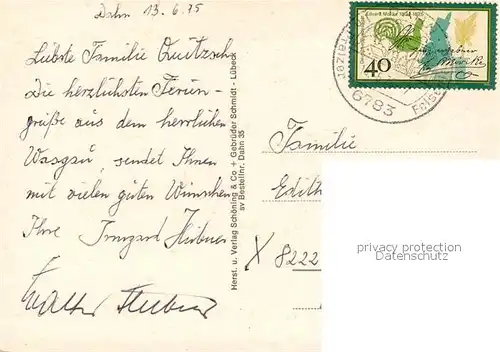 Dahn 13.6.75
Liebste Familie Quitzsch
Die herzlichsten Ferien-
grüße aus dem herrlichen
Wasgau, sendet Ihnen
mit vielen guten Wünschen
Ihre Irmgard Hübner
Walter Hübner
Herst. u. Verlag Schöning & Co + Gebrüder Schmidt - Lübeck
sv Bestellnr. Dahn 35
Eduard Mörike 1804-1875
40
6783
Familie
Edith
X 8222
privacy protection
Datenschutz